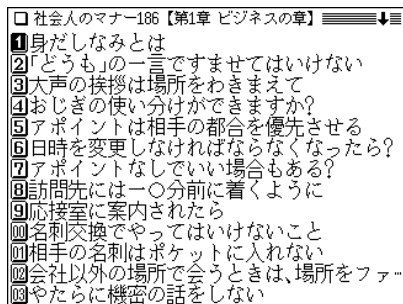 社会人のマナー186【第1章 ビジネスの章】
1身だしなみとは
2「どうも」の一言ですませてはいけない
3大声の挨拶は場所をわきまえて
4おじぎの使い分けができますか?
5アポイントは相手の都合を優先させる
6日時を変更しなければならなくなったら?
7アポイントなしでいい場合もある?
8訪問先には一〇分前に着くように
9応接室に案内されたら
00名刺交換でやってはいけないこと
01相手の名刺はポケットに入れない
02会社以外の場所で会うときは、場所をファ…
03やたらに機密の話をしない